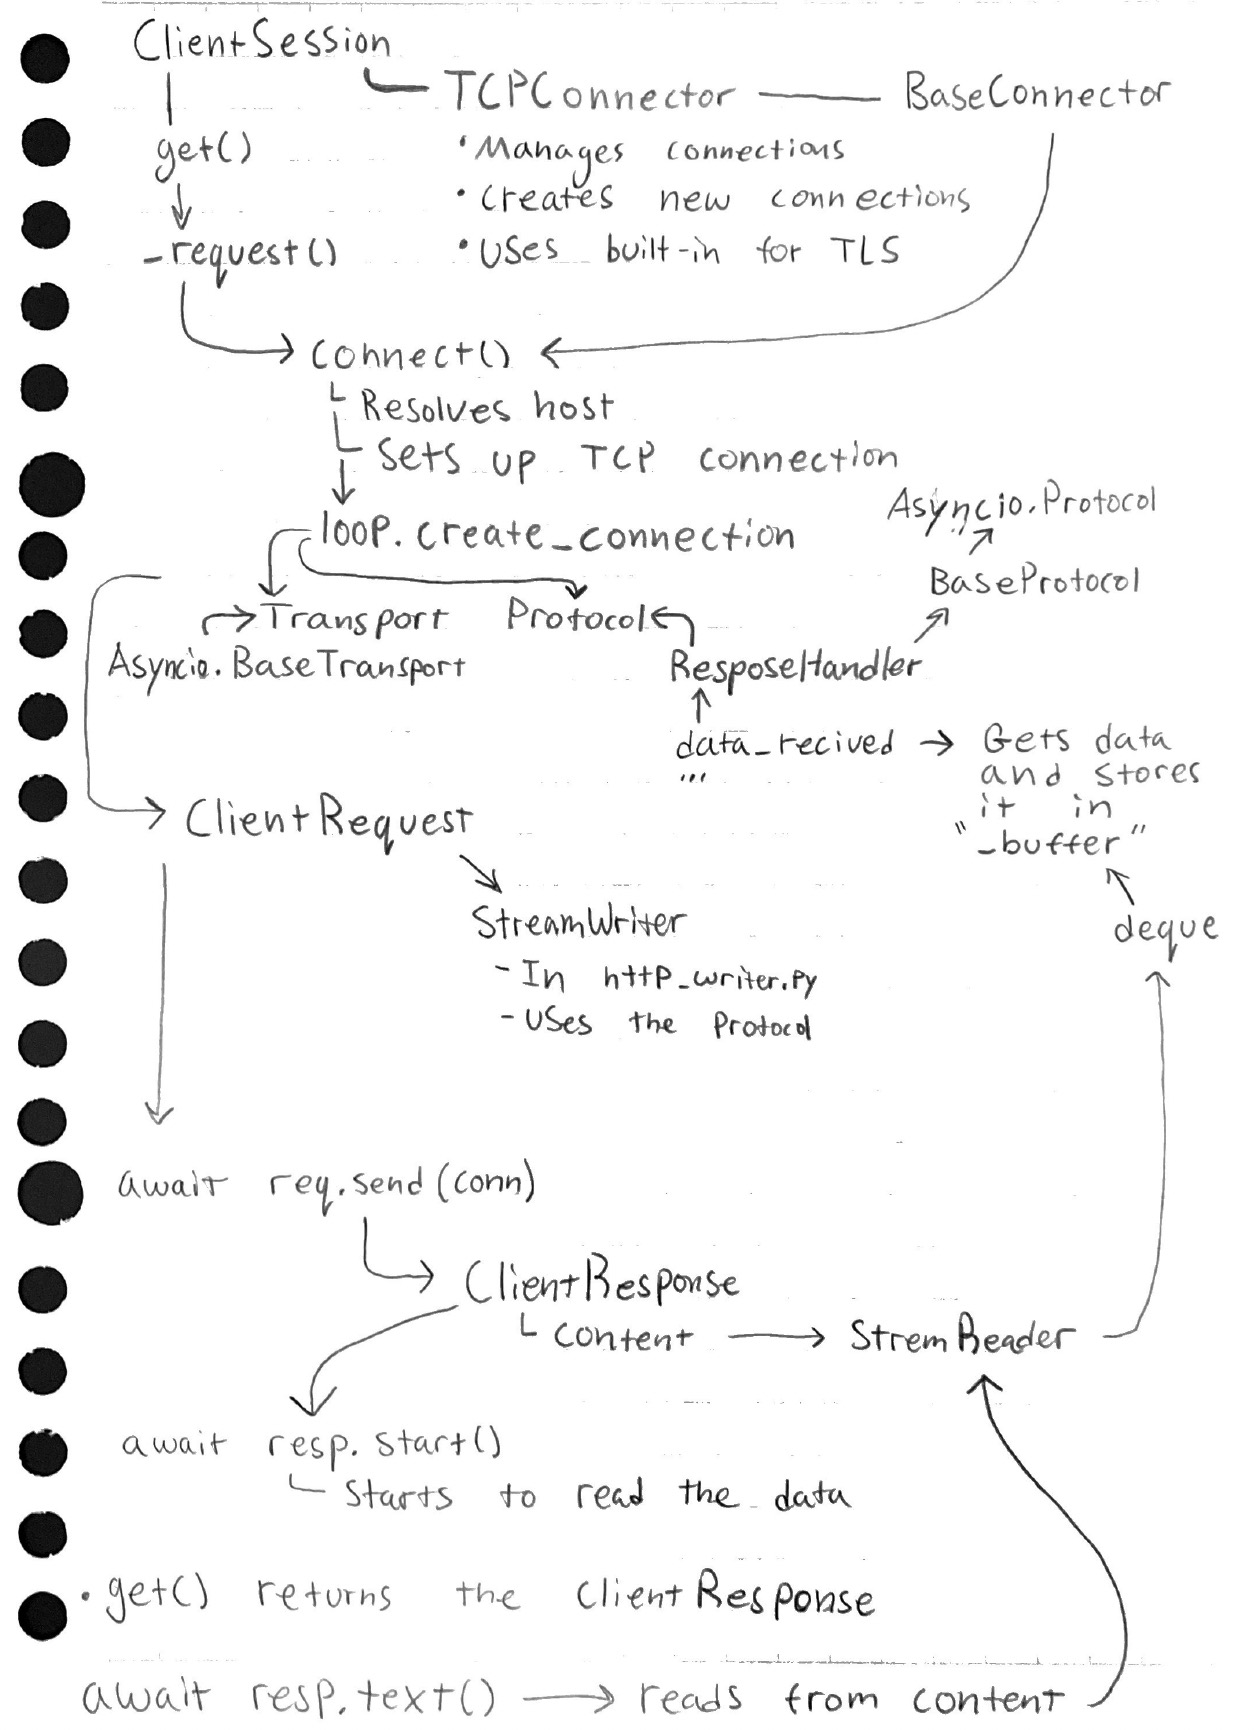 ClientSession
TCPConnector
BaseConnector
get()
• Manages connections
• Creates new connections
_request()
• Uses built-in for TLS
connect()
Resolves host
Sets up TCP connection
Asyncio.Protocol
loop.create_connection
BaseProtocol
Transport
Protocol
Asyncio.BaseTransport
ResposeHandler
data_recived → Gets data
...
and stores
it in
"_buffer"
ClientRequest
deque
StreamWriter
- In http_writer.py
- Uses the Protocol
await req.send(conn)
ClientResponse
content → StremReader
await resp.start()
Starts to read the data
• get() returns the ClientResponse
await resp.text() → reads from content